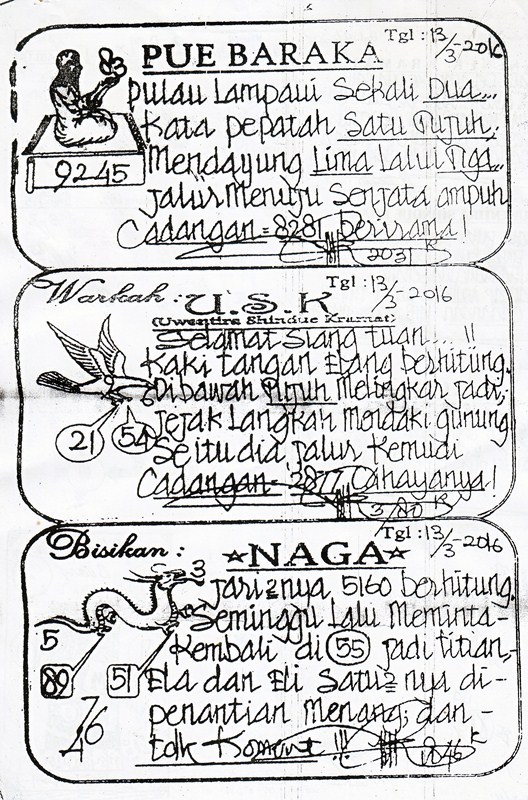 PUE BARAKA Tgl : 13/3-2016
Pulau Lampaui Sekali Dua...
Kata pepatah Satu Tujuh,
Mendayung Lima Lalui Tiga
9245
jalur Menuju Senjata ampuh
Cadangan = 8281 bersama!
2031 K
Warkah : U.S.K Tgl : 13/3-2016
(Uwentira Shindue Kramat)
Selamat siang tuan... !!
Kaki tangan Elang berhitung.
Dibawah Tujuh Melingkar jadi,
21 54
jejak Langkah Mendaki gunung
Seitu dia jalur Kemudi
Cadangan = 2877 Cahayanya!
Bisikan : NAGA Tgl : 13/3-2016
3
jari2nya 5160 berhitung.
Seminggu Lalu Meminta-
5
Kembali di 55 jadi titian,-
89 51
Ela dan Eli Satu2 nya di-
76
4
penantian Menang; dan -
tdk !!!
1846 K